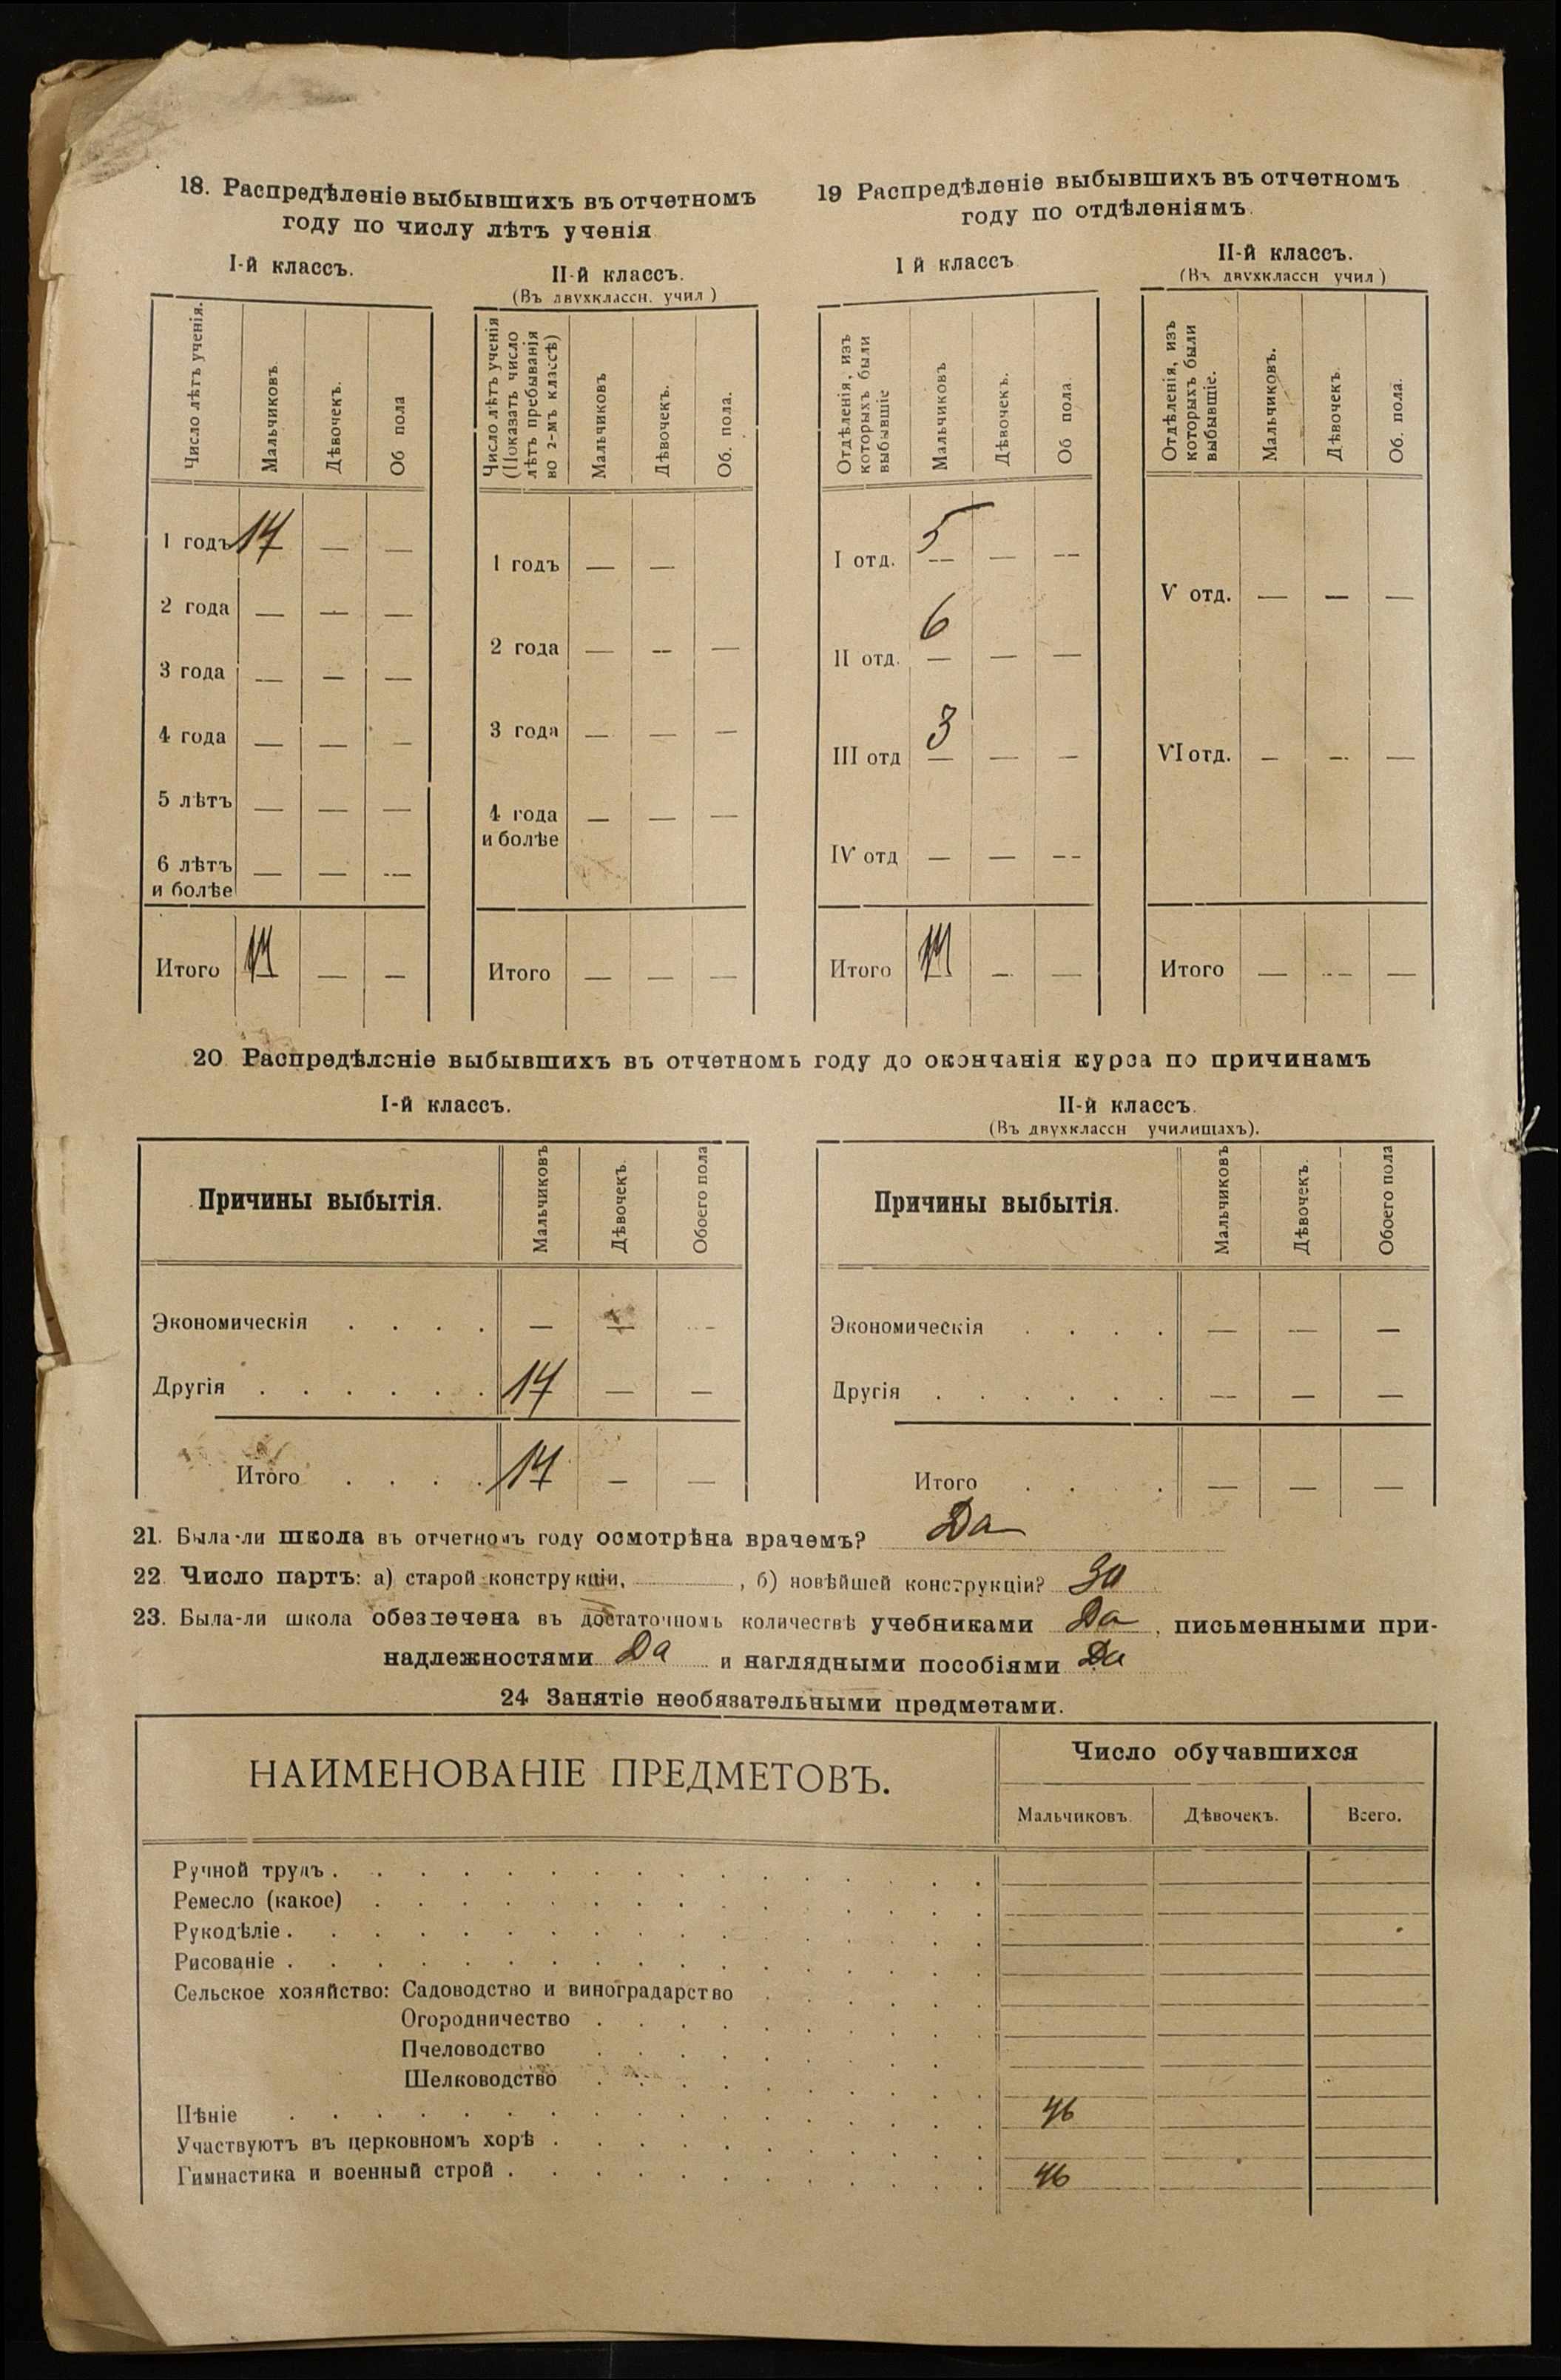 18. Распредѣленіе выбывшихъ въ отчетномъ
году по числу лѣтъ ученія
I-й классъ.
Число лѣтъ ученія. Мальчиковъ. Дѣвочекъ. Об пола
1 годъ 14 — —
2 года — — —
3 года — — —
4 года — — —
5 лѣтъ — — —
6 лѣтъ — — —
и болѣе
Итого 14 — —
II-й классъ.
(Въ двухклассн. учил)
Число лѣтъ ученія
(Показать число
лѣтъ пребыванія
во 2-мъ классѣ)
Мальчиковъ Дѣвочекъ. Об. пола.
1 годъ — —
2 года — — —
3 года — — —
4 года — — —
и болѣе
Итого — — —
19 Распредѣленіе выбывшихъ въ отчетномъ
году по отдѣленіямъ.
I й классъ
Отдѣленія, изъ
которыхъ были
выбывшіе
Мальчиковъ Дѣвочекъ. Об пола.
I отд. 5 — —
II отд. 6 — —
III отд 3 — —
IV отд — — —
Итого 14 — —
II-й классъ.
(Въ двухклассн учил)
Отдѣленія, изъ
которыхъ были
выбывшіе.
Мальчиковъ. Дѣвочекъ. Об. пола.
V отд. — — —
VI отд. — — —
Итого — — —
20. Распредѣленіе выбывшихъ въ отчетномъ году до окончанія курса по причинамъ
I-й классъ.
Причины выбытія. Мальчиковъ Дѣвочекъ. Обоего пола
Экономическія . . . . — — —
Другія . . . . . . 14 — —
Итого . . . . 14 — —
II-й классъ.
(Въ двухклассн училищахъ).
Причины выбытія. Мальчиковъ Дѣвочекъ. Обоего пола
Экономическія . . . . — — —
Другія . . . . . . — — —
Итого . . . . — — —
21. Была-ли школа въ отчетномъ году осмотрѣна врачемъ? Да
22. Число партъ: а) старой конструкціи, , б) новѣйшей конструкціи? 30
23. Была-ли школа обезпечена въ достаточномъ количествѣ учебниками Да, письменными при-
надлежностями Да и наглядными пособіями Да
24 Занятіе необязательными предметами.
НАИМЕНОВАНІЕ ПРЕДМЕТОВЪ. Число обучавшихся
Мальчиковъ. Дѣвочекъ. Всего.
Ручной трудъ.
Ремесло (какое)
Рукодѣліе.
Рисованіе.
Сельское хозяйство: Садоводство и виноградарство
Огородничество
Пчеловодство
Шелководство
Пѣніе 46
Участвуютъ въ церковномъ хорѣ.
Гимнастика и военный строй. 46